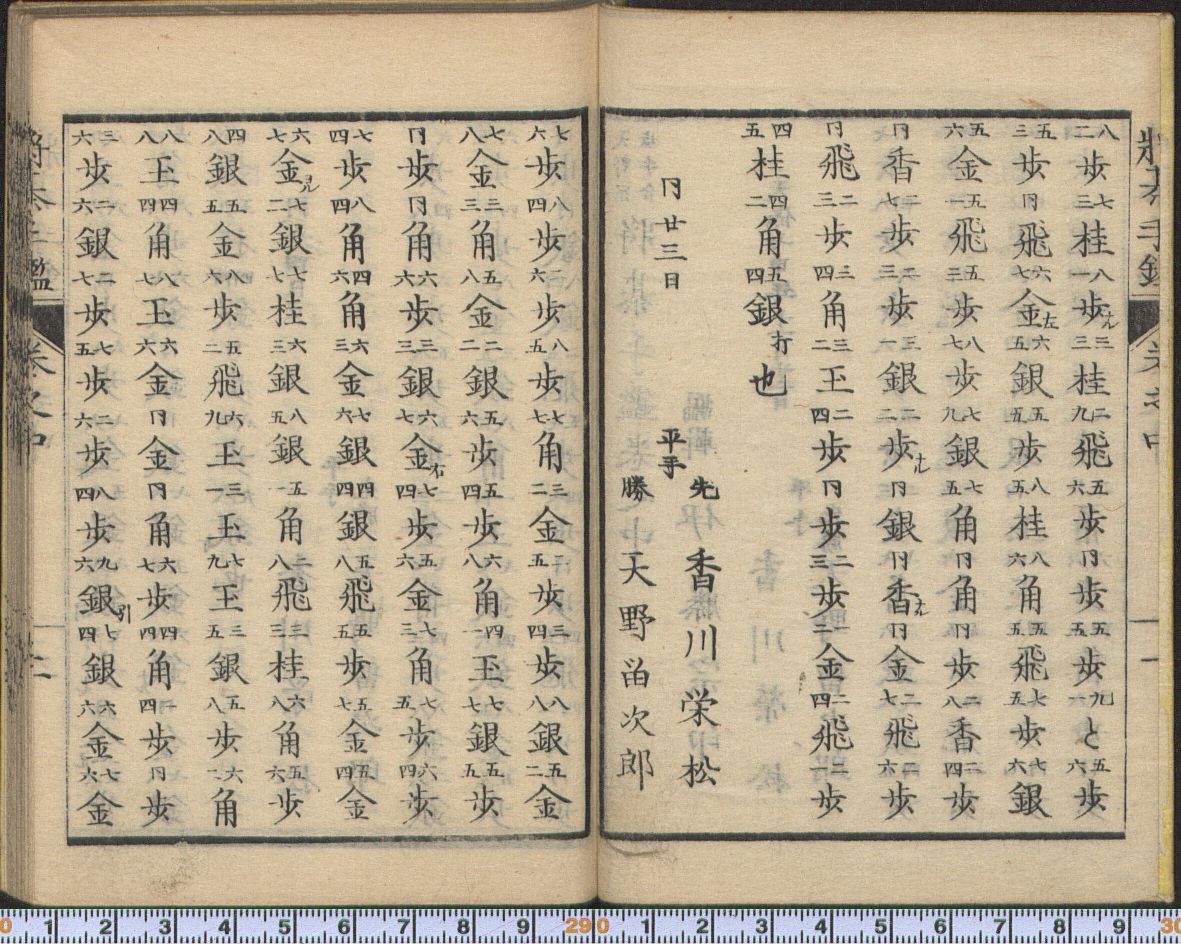 将棊手鑑 巻之中 一
八二歩七三桂八一歩成三三桂二九飛五六歩同歩五五歩九一と五六歩
五三歩同飛六七金左六五銀五五歩八五桂八六角五五飛七五歩七六銀
五六金五一飛五三歩八七歩七九銀七五角同角同歩二八香二四歩
同香二七歩二三歩三一銀二二歩成同銀同香成同金二七飛二六歩
同飛二三歩三四角三二王二四歩同歩二三歩金二四飛歩
四五桂四二角五四銀打也
同廿三日
平手
先 香川栄松
勝 天野留次郎
七六歩八四歩二六歩八五歩七七角三二金二五歩三四歩八八銀五二金
七八金三三角五八金二二銀五六歩五四歩六八角四一王七七銀五五歩
同歩同角六六歩三三銀六七金右七四歩五六金七三角七五歩六四歩
七四歩八四角四六角六三金七六銀四四銀五八飛五五歩五七金五四金
六七金引七二銀七七桂六三銀八五銀五一角二八飛三三桂六八角五六歩
四八銀五五金八六歩五二飛六九王三一王七九王三五銀五八歩六二角
八八王四四角八七王六六金同金同角六七歩四四角二四歩同歩
三六歩二六銀二七歩七五歩二六歩八四歩九六銀引七四銀六六金七六金
将棊手鑑 巻之中 二
0 1 2 3 4 5 6 7 8 9 29 0 1 2 3 4 5 6 7 8 9 30